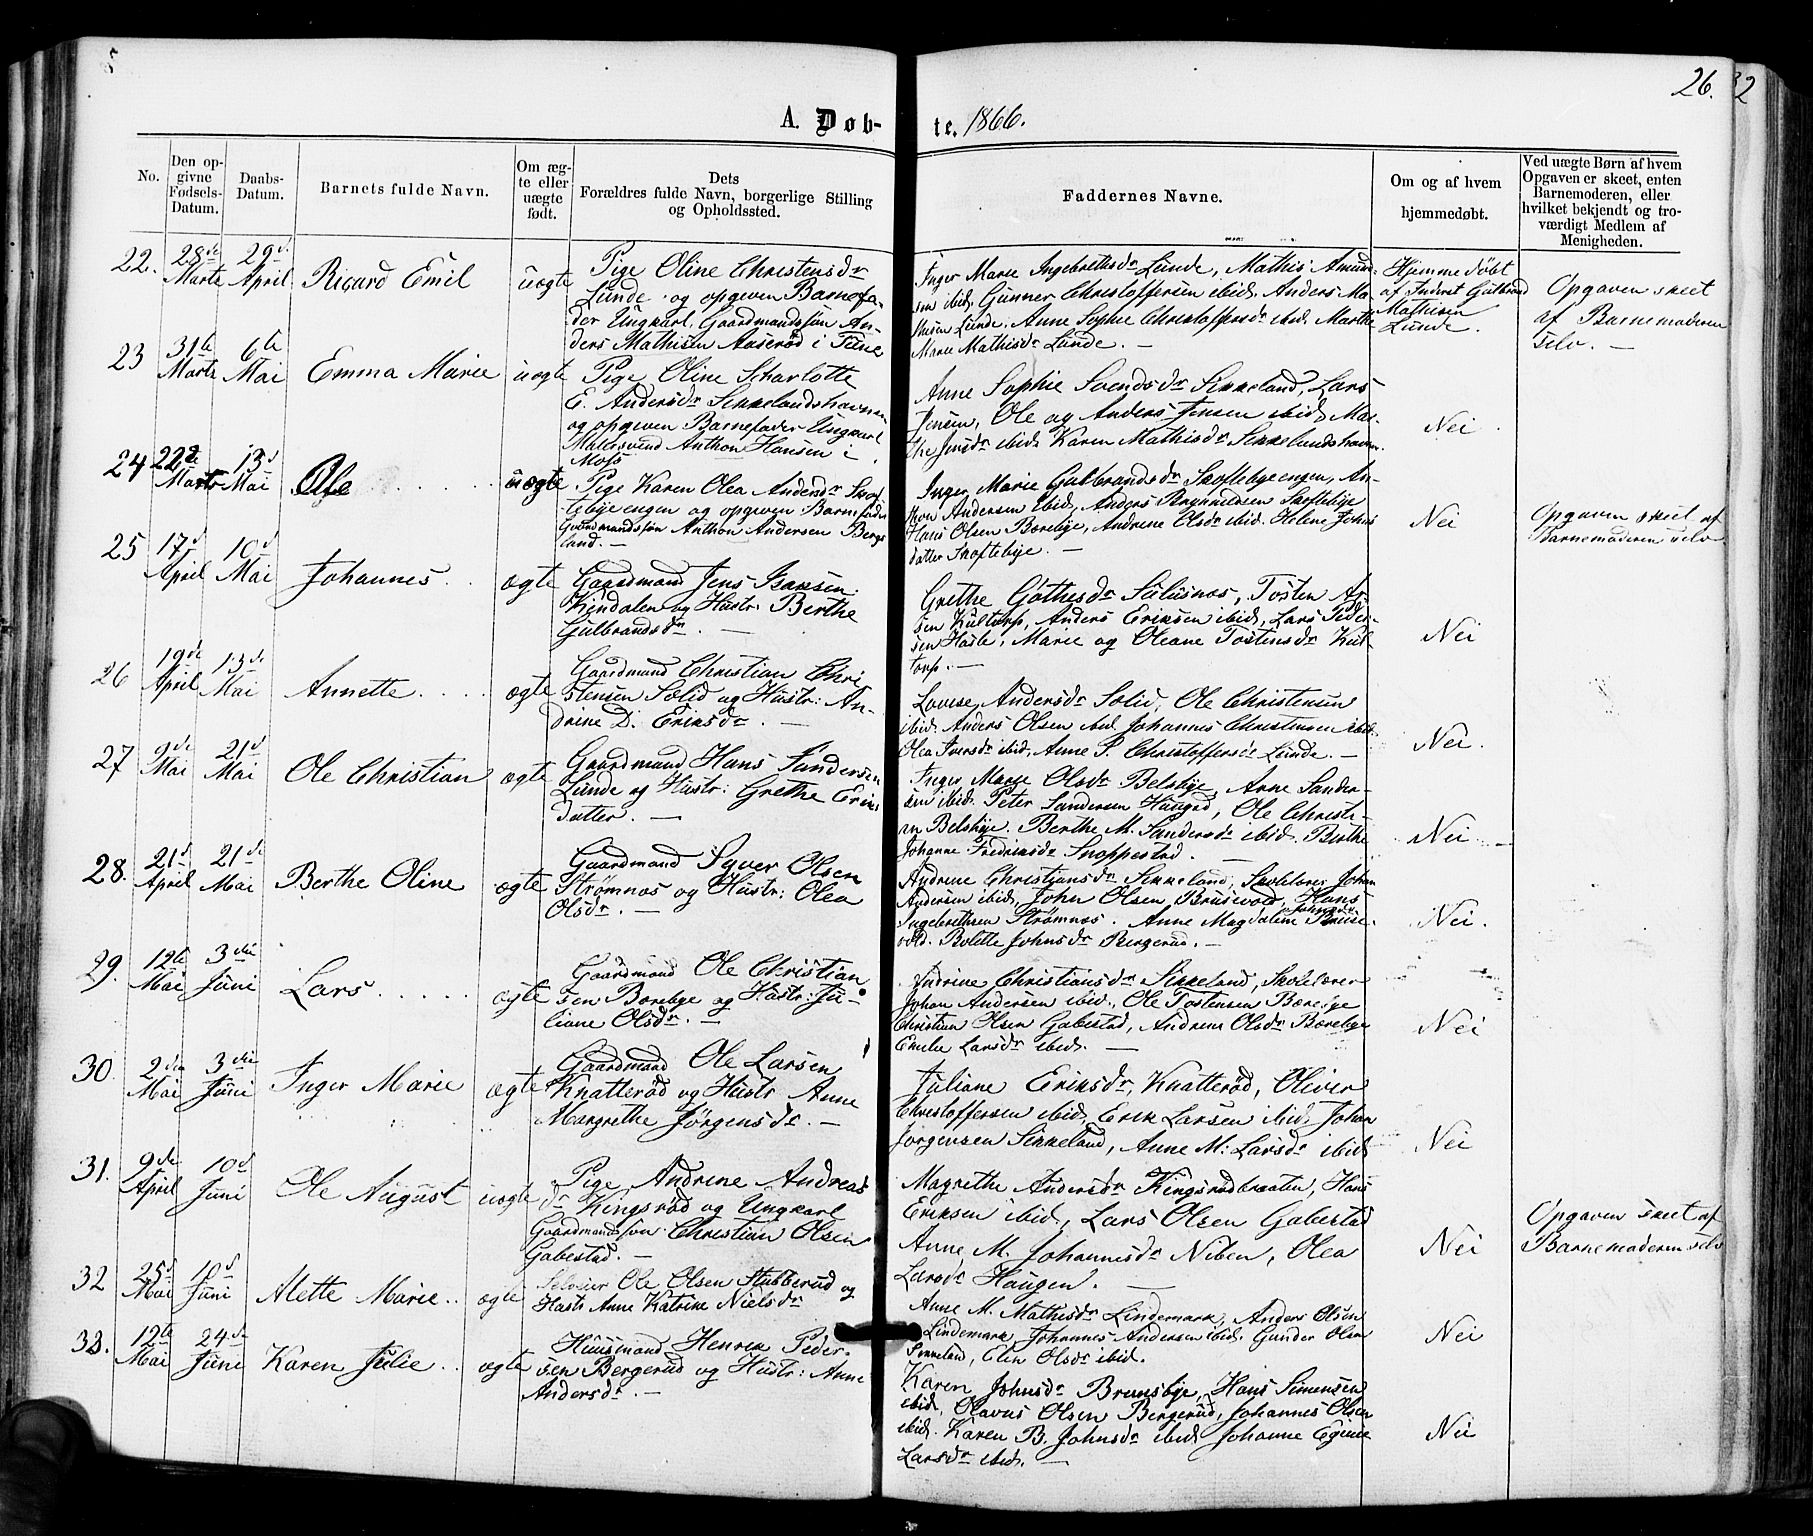 26. 32
A. Døb- te. 1866.
No.
Den op-
givne
Fødsels-
Datum.
Daabs-
Datum.
Barnets fulde Navn.
Om æg-
te eller
uægte
født.
Dets
Forældres fulde Navn, borgerlige Stilling
og Opholdssted.
Faddernes Navne.
Om og af hvem
hjemmedøbt.
Ved uægte Børn af hvem
Opgaven er skeet, enten
Barnemoderen, eller
hvilket bekjendt og tro-
værdigt Medlem af
Menigheden.
22. 28de Marts 29d April Ricard Emil uægte
Pige Oline Christensdr
Lunde og opgiven Barnefa-
der Ungkarl, Gaardmandssøn An-
ders Mathisen Aaserød i Tune
Inger Marie Ingebrethsdr Lunde, Mathis Amund-
sen ibid, Gunner Christoffersen ibid. Anders Ma-
thisen Lunde. Anne Sophie Christoffersdr ibid. Marthe
Marie Mathisdr Lunde. —
Hjemmedøbt
af Inderst Gulbrand
Mathisen
Lunde.
Opgaven skeet
af Barnemoderen
selv. —
23 31te Marts 6te Mai Emma Marie uægte
Pige Oline Scharlotte
E. Andersdr Sikkelandshavnen
og opgiven Barnefader Ungkarl
Møllersvend Anthon Hansen i
Moss
Anne Sophie Svendsdr Sikkeland, Lars
Jensen, Ole og Anders Jensen ibid. Mar-
the Jensdr ibid. Karen Mathisdr Sikkelandshavn.
Nei
24 22de Marts 13d Mai Ole uægte
Pige Karen Olea Andersdr Skof-
tebyeengen og opgiven Barnefader
Gaardmandssøn Anthon Andersen Berge-
land. —
Inger Marie Gulbrandsdr Skoftebyeengen, An-
thon Andersen ibid, Anders Brynildsen Skoftebye
Hans Olsen Bærebye, Andrine Olsdr ibid. Helene Johns
datter Skoftebye. —
Nei
Opgaven skeet af
Barnemoderen selv.
25 17d April 10d Mai Johannes ægte
Gaardmand Jens Isaksen
Kjndalen og Hustr: Berthe
Gulbrandsdr. —
Grethe Gothesdr Sulusnæs, Tosten Ar-
sen Kultorp, Anders Eriksen ibid, Lars Peder-
sen Hasle, Marie og Oleane Tostensdr Kul-
torp. —
Nei
26 19de April 13de Mai Annette ægte
Gaardmand Christian Chri
stensen Solid og Hustr: An-
drine D. Eriksdr. —
Lovise Andersdr Solid, Ole Christensen
ibid. Anders Olsen ibid Johannes Christensen ibid.
Olea Iversdr ibid, Anne S. Christoffersdr Lunde. —
Nei.
27 9de Mai 21d Mai Ole Christian ægte
Gaardmand Hans Sandersen
Lunde og Hustr: Grethe Eriks
datter. —
Inger Marie Olsdr Belsbye, Arne Sander-
sen ibid. Peter Sandersen Haugad, Ole Christi-
an Belsbye. Berthe M. Sandersdr ibid. Berthe
Johanne Fredriksdr Snoppestad. —
Nei
28. 21d April 21de Mai Berthe Oline ægte
Gaardmand Syver Olsen
Strømnæs og Hustr: Olea
Olsdr. —
Andrine Christiansdr Sikkeland, Skolelærer Johan
Andersen ibid, John Olsen Brusevold, Hans
Ingebrethsen Strømnæs. Anne Magdalene Johnsdr Bruse-
vold. Bolette Johnsdr Bergerud. —
Nei.
29. 12te Mai 3die Juni Lars ægte
Gaardmand Ole Christian
sen Bærebye og Hustr: Ju-
liane Olsdr. —
Andrine Christiansdr Sikkeland, Skolelærer
Johan Andersen ibid., Ole Tostensen Bærebye
Christian Olsen Gabestad, Andrene Olsdr Bærebye
Emilie Larsdr ibid. —
Nei
30. 2den Mai 3die Juni Inger Marie ægte
Gaardmand Ole Larsen
Knatterød og Hustr Anne
Margrethe Jørgensdr. —
Juliane Eriksdr, Knatterød, Oliver
Christoffersen ibid, Erik Larsen ibid. Johan
Jørgensen Sikkeland, Anne M. Larsdr ibid
Nei
31. 9de April 10d Juni Ole August uægte
Pige Andrine Andreas
dr Kingsrød og Ungkarl
Gaardmandssøn Christian Olsen
Gabestad. —
Magrethe Andersdr Kingsrødbraaten, Hans
Eriksen ibid, Lars Olsen Gabestad
Anne M. Johannesdr Niben, Olea
Larsdr Haugen. —
Nei
Opgaven skeet af
Barnemoderen selv
32 25d Mai 10d Juni Alette Marie ægte
Selveier Ole Olsen Stubberud og
Hustr Anne Katrine Nielsdr
Anne M. Mathisdr Lindemark, Anders Olsen
Lindemark, Johannes Andersen ibid. Gunder Olsen
Sikkeland, Elen Olsdr ibid.
Nei
33. 12te Mai 24de Juni Karen Julie ægte
Huusmand Henrik Peder-
sen Bergerud og Hustr: Anne
Andersdr. —
Karen Johnsdr Brunsbye, Hans Simensen
ibid, Olavus Olsen Bergerud, Johannes Olsen
ibid. Karen B. Johnsdr ibid Johanne Egine
Larsdr ibid. —
Nei